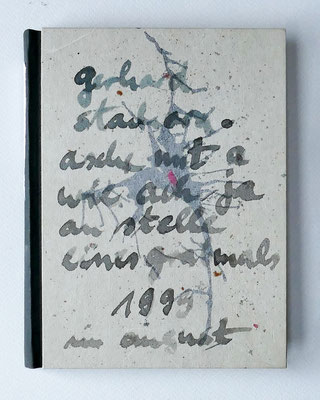 gerhard
stachora.
asche mit a
wie ach ja
an stelle
eines grabmals
1999
im august